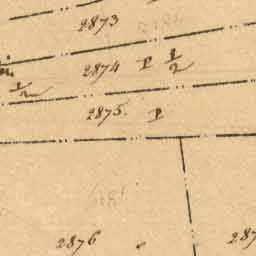 2873
2874 P 1/2
1/2
2875. P
2876
287